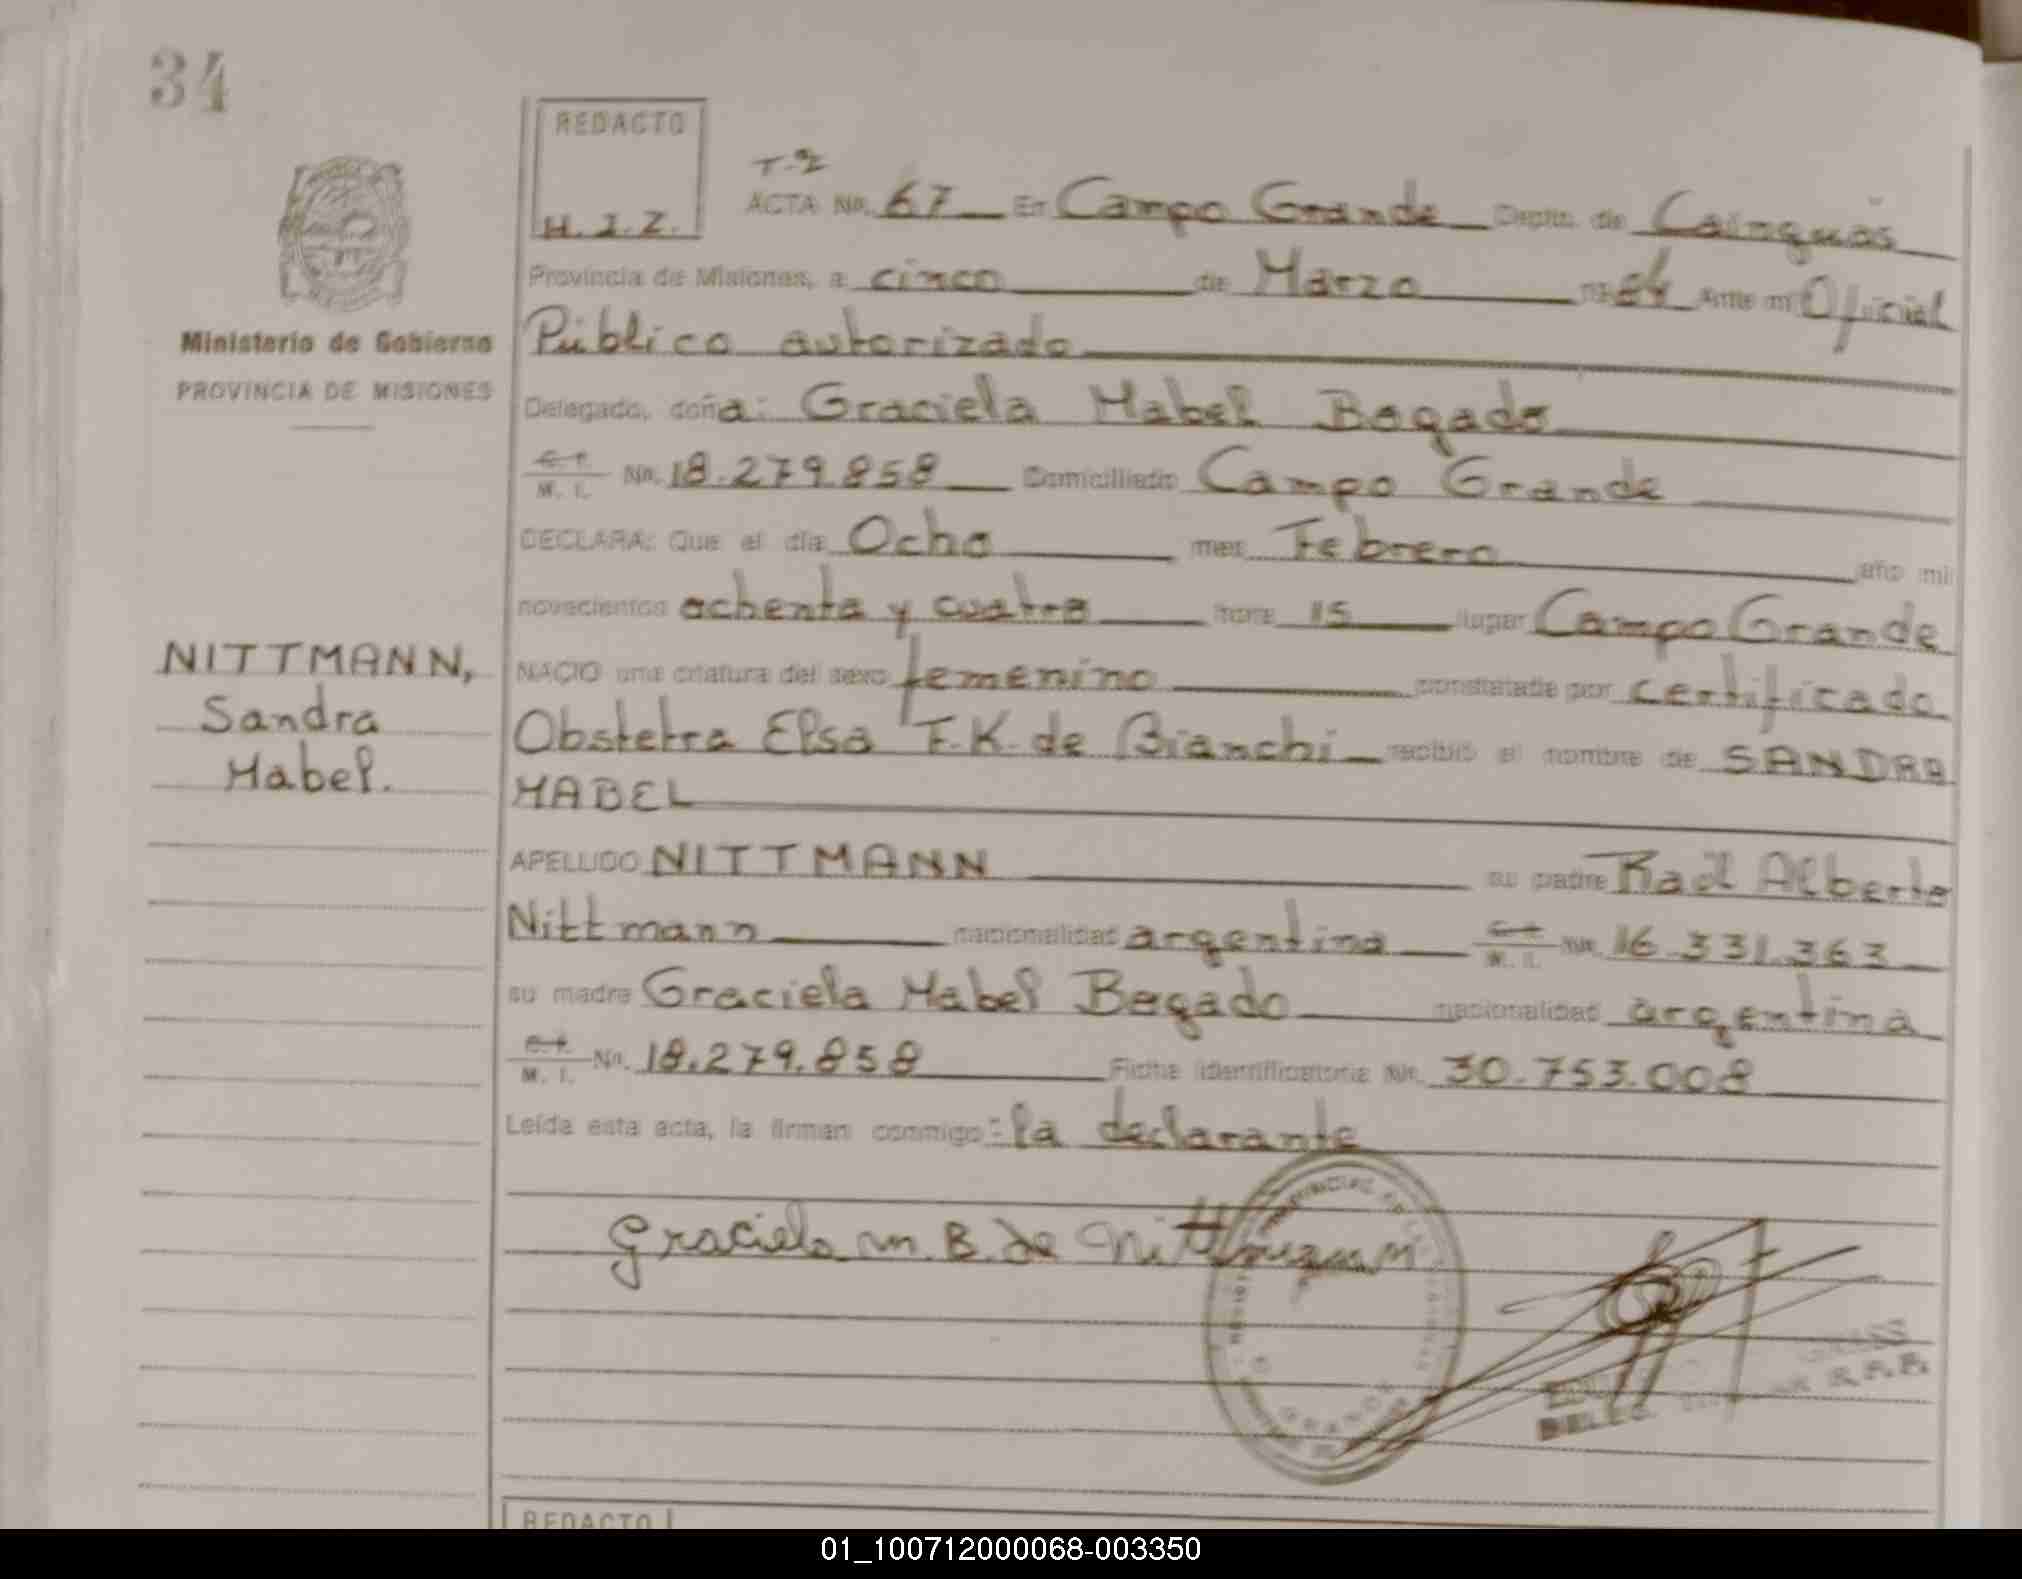 34
REDACTO
H.J.Z.
Ministerio de Gobierno
PROVINCIA DE MISIONES
NITTMANN,
Sandra
Mabel.
T.2
ACTA No. 67 En Campo Grande Depto. de Cainguás
Provincia de Misiones, a cinco de Marzo 1984 Ante mi Oficial
Público autorizado
Delegado, doña: Graciela Mabel Bogado
C. I. M. I. No. 18.279.858 Domiciliado Campo Grande
DECLARA: Que el día Ocho mes Febrero año mil
novecientos ochenta y cuatro hora 15 lugar Campo Grande
NACIO una criatura del sexo femenino constatado por certificado
Obstetra Elsa F.K. de Bianchi recibió el nombre de SANDRA
MABEL
APELLIDO NITTMANN su padre Raúl Alberto
Nittmann nacionalidad argentina C. I. M. I. No. 16.331.363
su madre Graciela Mabel Bogado nacionalidad argentina
C. I. M. I. No. 18.279.858 Ficha identificatoria No. 30.753.008
Leída esta acta, la firman conmigo: la declarante
Graciela M. B. de Nittmann
DELEG. R.P.P.
REDACTO
01_100712000068-003350